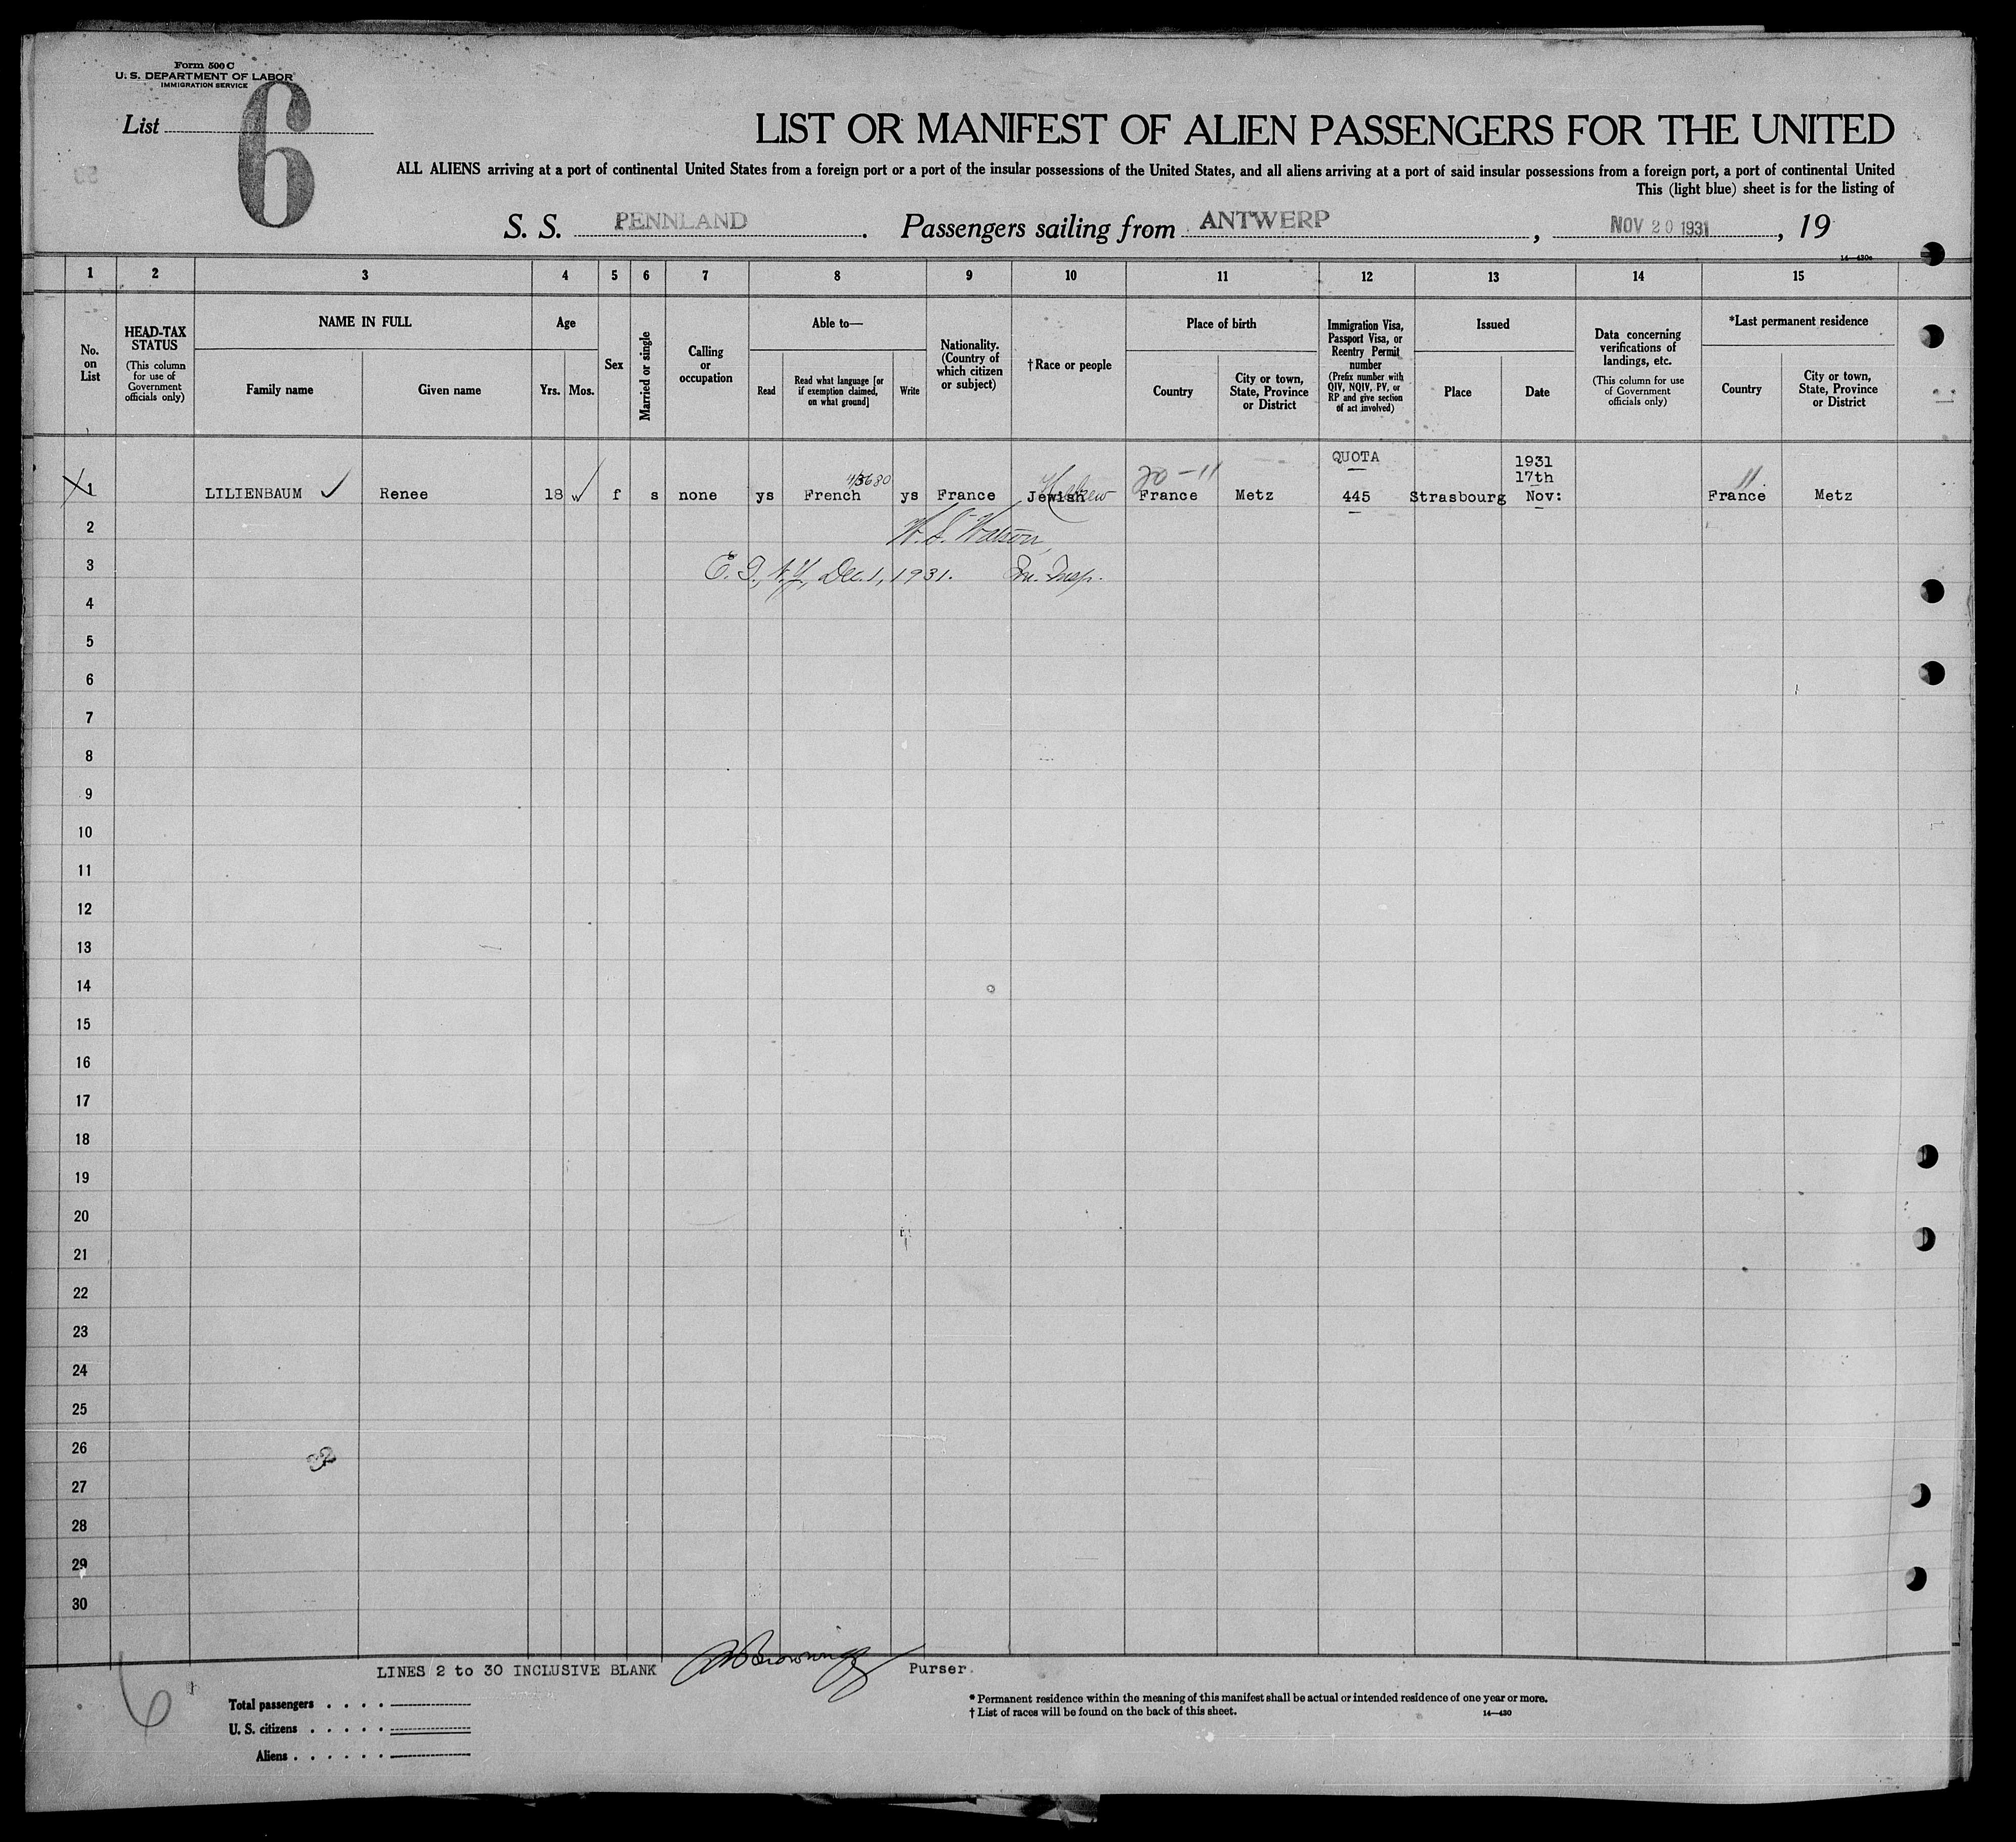 Form 500 C
U. S. DEPARTMENT OF LABOR
IMMIGRATION SERVICE
List
6
LIST OR MANIFEST OF ALIEN PASSENGERS FOR THE UNITED
ALL ALIENS arriving at a port of continental United States from a foreign port or a port of the insular possessions of the United States, and all aliens arriving at a port of said insular possessions from a foreign port, a port of continental United
This (light blue) sheet is for the listing of
S. S. PENNLAND. Passengers sailing from ANTWERP, NOV 20 1931, 19
14—430a
1 2 3 4 5 6 7 8 9 10 11 12 13 14 15
No. on List
HEAD-TAX STATUS
(This column for use of Government officials only)
NAME IN FULL
Family name
Given name
Age
Yrs. Mos.
Sex
Married or single
Calling or occupation
Able to—
Read
Read what language [or if exemption claimed, on what ground]
Write
Nationality. (Country of which citizen or subject)
†Race or people
Place of birth
Country
City or town, State, Province or District
Immigration Visa, Passport Visa, or Reentry Permit number
(Prefix number with QIV, NQIV, PV, or RP and give section of act involved)
Issued
Place
Date
Data concerning verifications of landings, etc.
(This column for use of Government officials only)
*Last permanent residence
Country
City or town, State, Province or District
20-11
QUOTA 1931
17th
1 LILIENBAUM ✓ Renee 18 f s none ys French ys France Jewish Hebrew France Metz 445 Strasbourg Nov: France Metz
2 W. S. Watson,
3 E. I., N.Y., Dec. 1, 1931. Im. Insp.
4
5
6
7
8
9
10
11
12
13
14
15
16
17
18
19
20
21
22
23
24
25
26
27
28
29
30
LINES 2 to 30 INCLUSIVE BLANK Purser.
6
Total passengers . . . .
U. S. citizens . . . . .
Aliens . . . . . .
* Permanent residence within the meaning of this manifest shall be actual or intended residence of one year or more.
† List of races will be found on the back of this sheet.
14—430